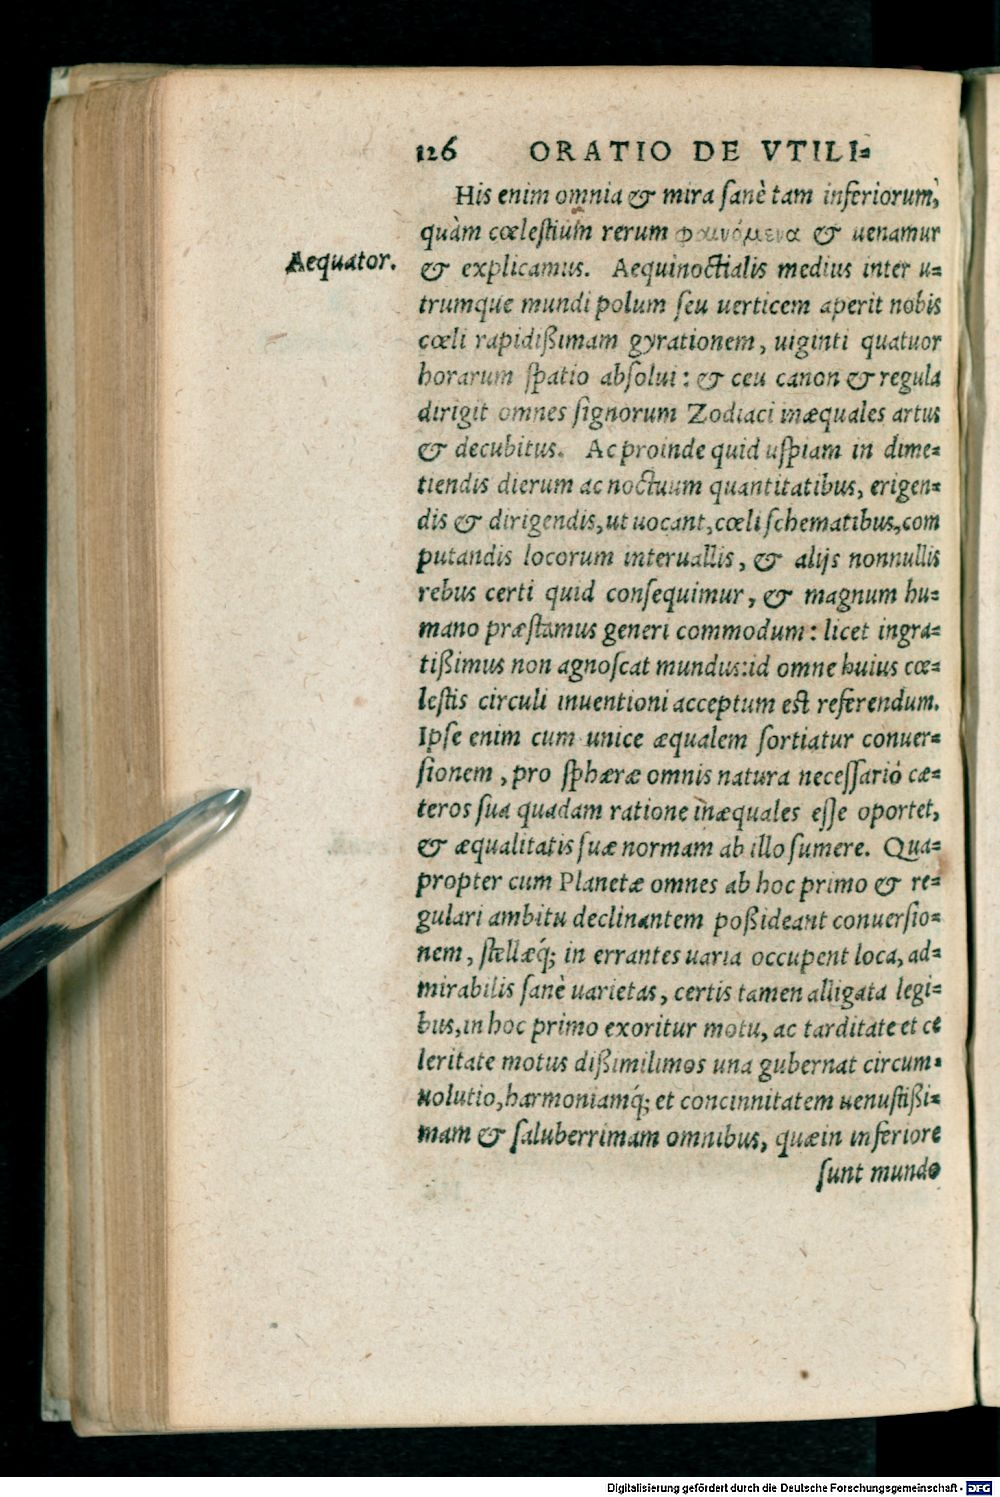 126 ORATIO DE VTILI-
His enim omnia & mira sanè tam inferiorum,
quàm cœlestium rerum φαινόμενα & uenamur
Aequator.
& explicamus. Aequinoctialis medius inter u-
trumque mundi polum seu uerticem aperit nobis
cœli rapidißimam gyrationem, uiginti quatuor
horarum spatio absolui: & ceu canon & regula
dirigit omnes signorum Zodiaci inæquales artus
& decubitus. Ac proinde quid uspiam in dime-
tiendis dierum ac noctuum quantitatibus, erigen-
dis & dirigendis, ut uocant, cœli schematibus, com
putandis locorum interuallis, & alijs nonnullis
rebus certi quid consequimur, & magnum hu-
mano præstamus generi commodum: licet ingra-
tißimus non agnoscat mundus: id omne huius cœ-
lestis circuli inuentioni acceptum est referendum.
Ipse enim cum unice æqualem sortiatur conuer-
sionem, pro sphæræ omnis natura necessariò cæ-
teros sua quadam ratione inæquales esse oportet,
& æqualitatis suæ normam ab illo sumere. Qua-
propter cum Planetæ omnes ab hoc primo & re-
gulari ambitu declinantem poßideant conuersio-
nem, stellæq́; in errantes uaria occupent loca, ad-
mirabilis sanè uarietas, certis tamen alligata legi-
bus, in hoc primo exoritur motu, ac tarditate et ce
leritate motus dißimilimos una gubernat circum-
uolutio, harmoniamq́; et concinnitatem uenustißi-
mam & saluberrimam omnibus, quæ in inferiore
sunt mundo
Digitalisierung gefördert durch die Deutsche Forschungsgemeinschaft - DFG